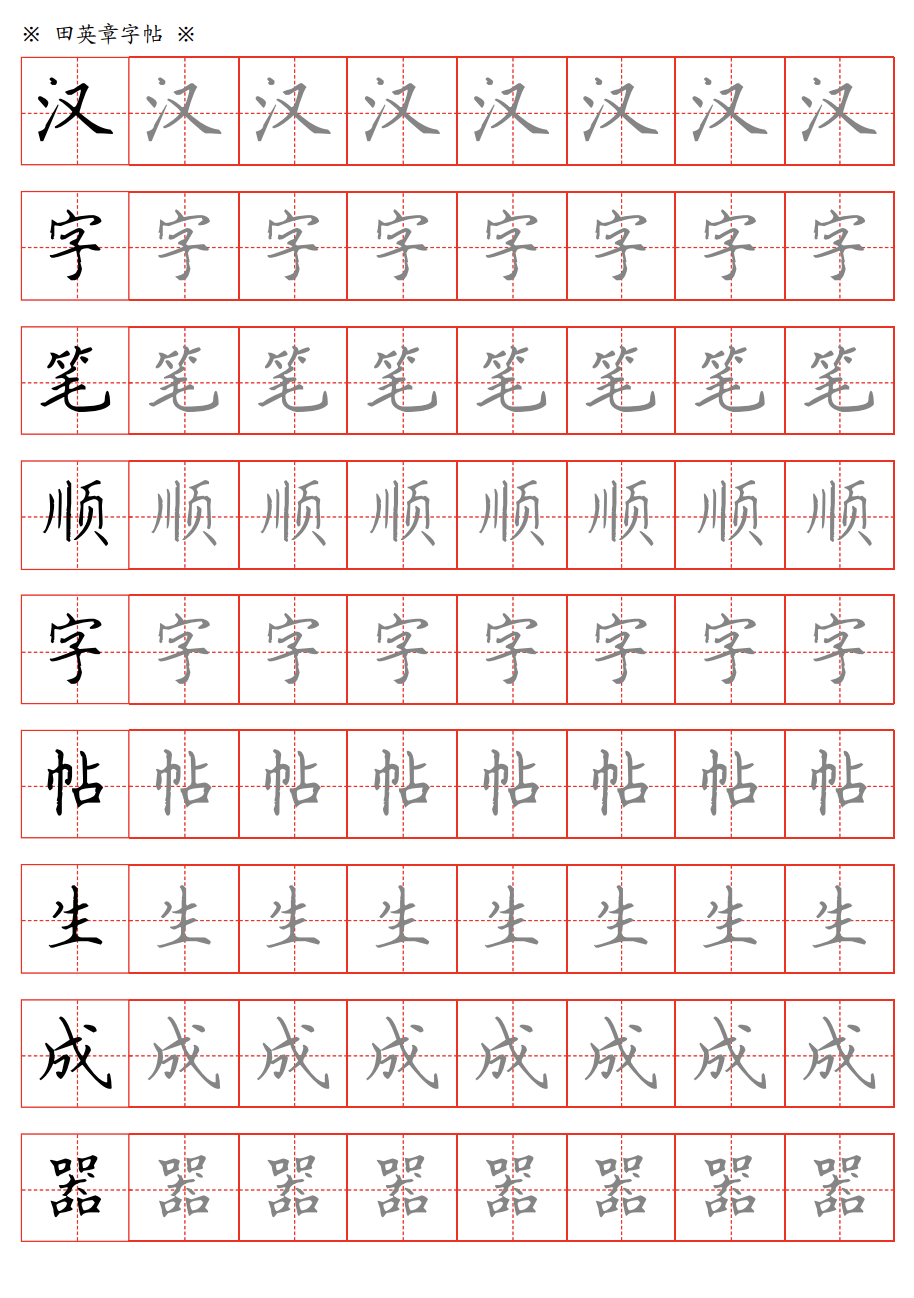 ※ 田英章字帖 ※
汉汉汉汉汉汉汉汉
字字字字字字字字
笔笔笔笔笔笔笔笔
顺顺顺顺顺顺顺顺
字字字字字字字字
帖帖帖帖帖帖帖帖
生生生生生生生生
成成成成成成成成
器器器器器器器器